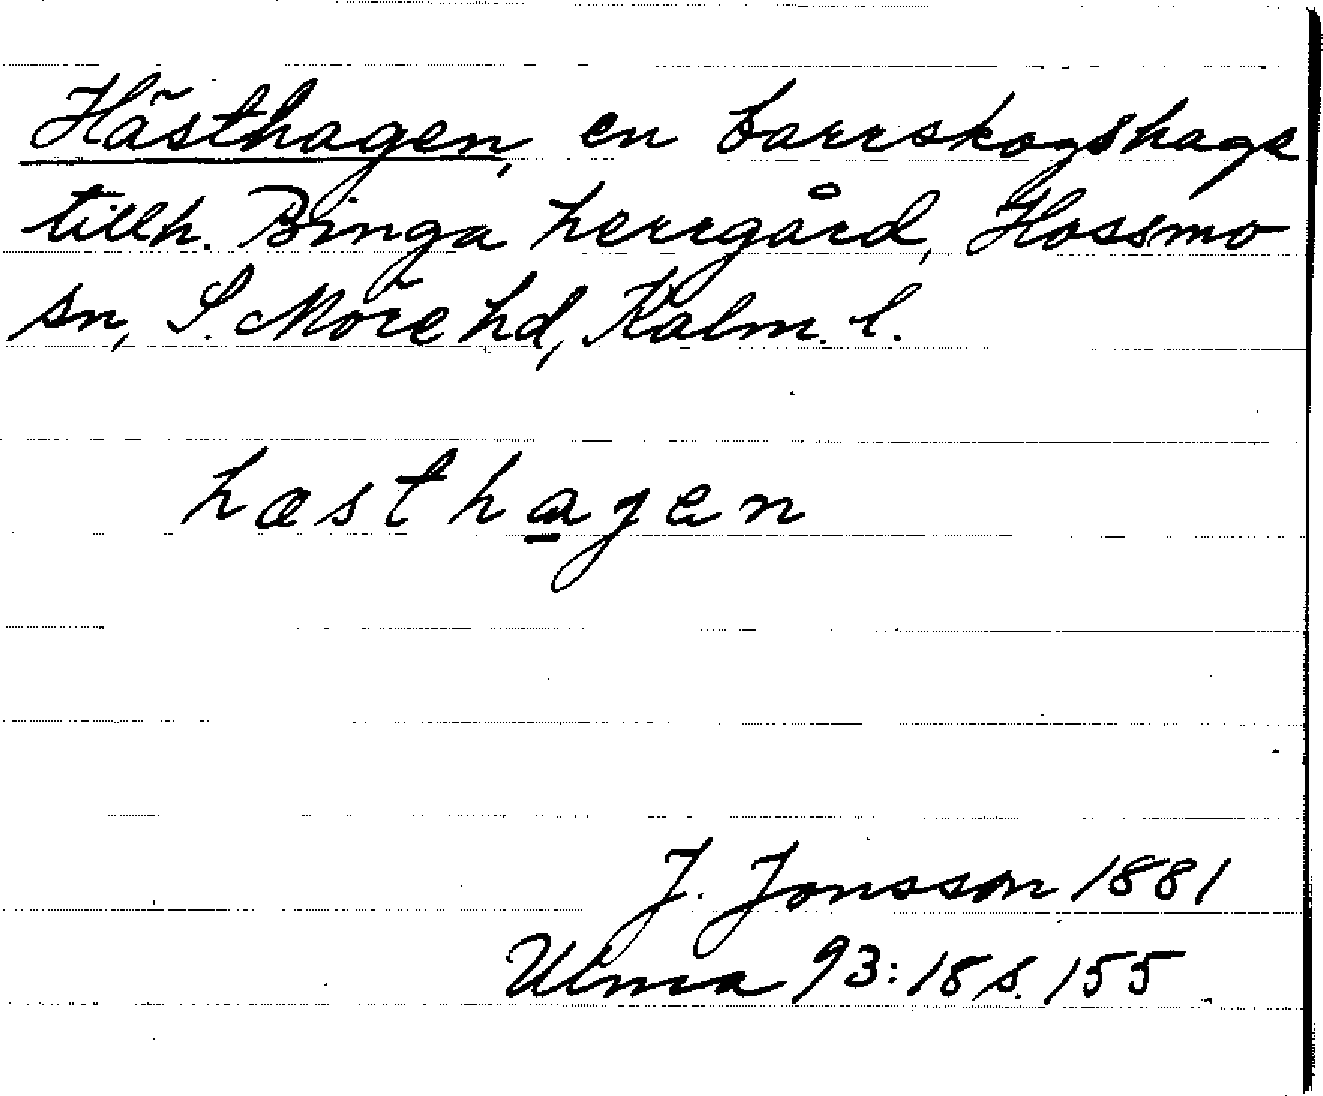 Hästhagen, en barrskogshage
tillh. Binga herrgård, Hossmo
sn, S. Möre hd, Kalm. l.
hæsthagen
J. Jonsson 1881
Ulma 93:18 s. 155